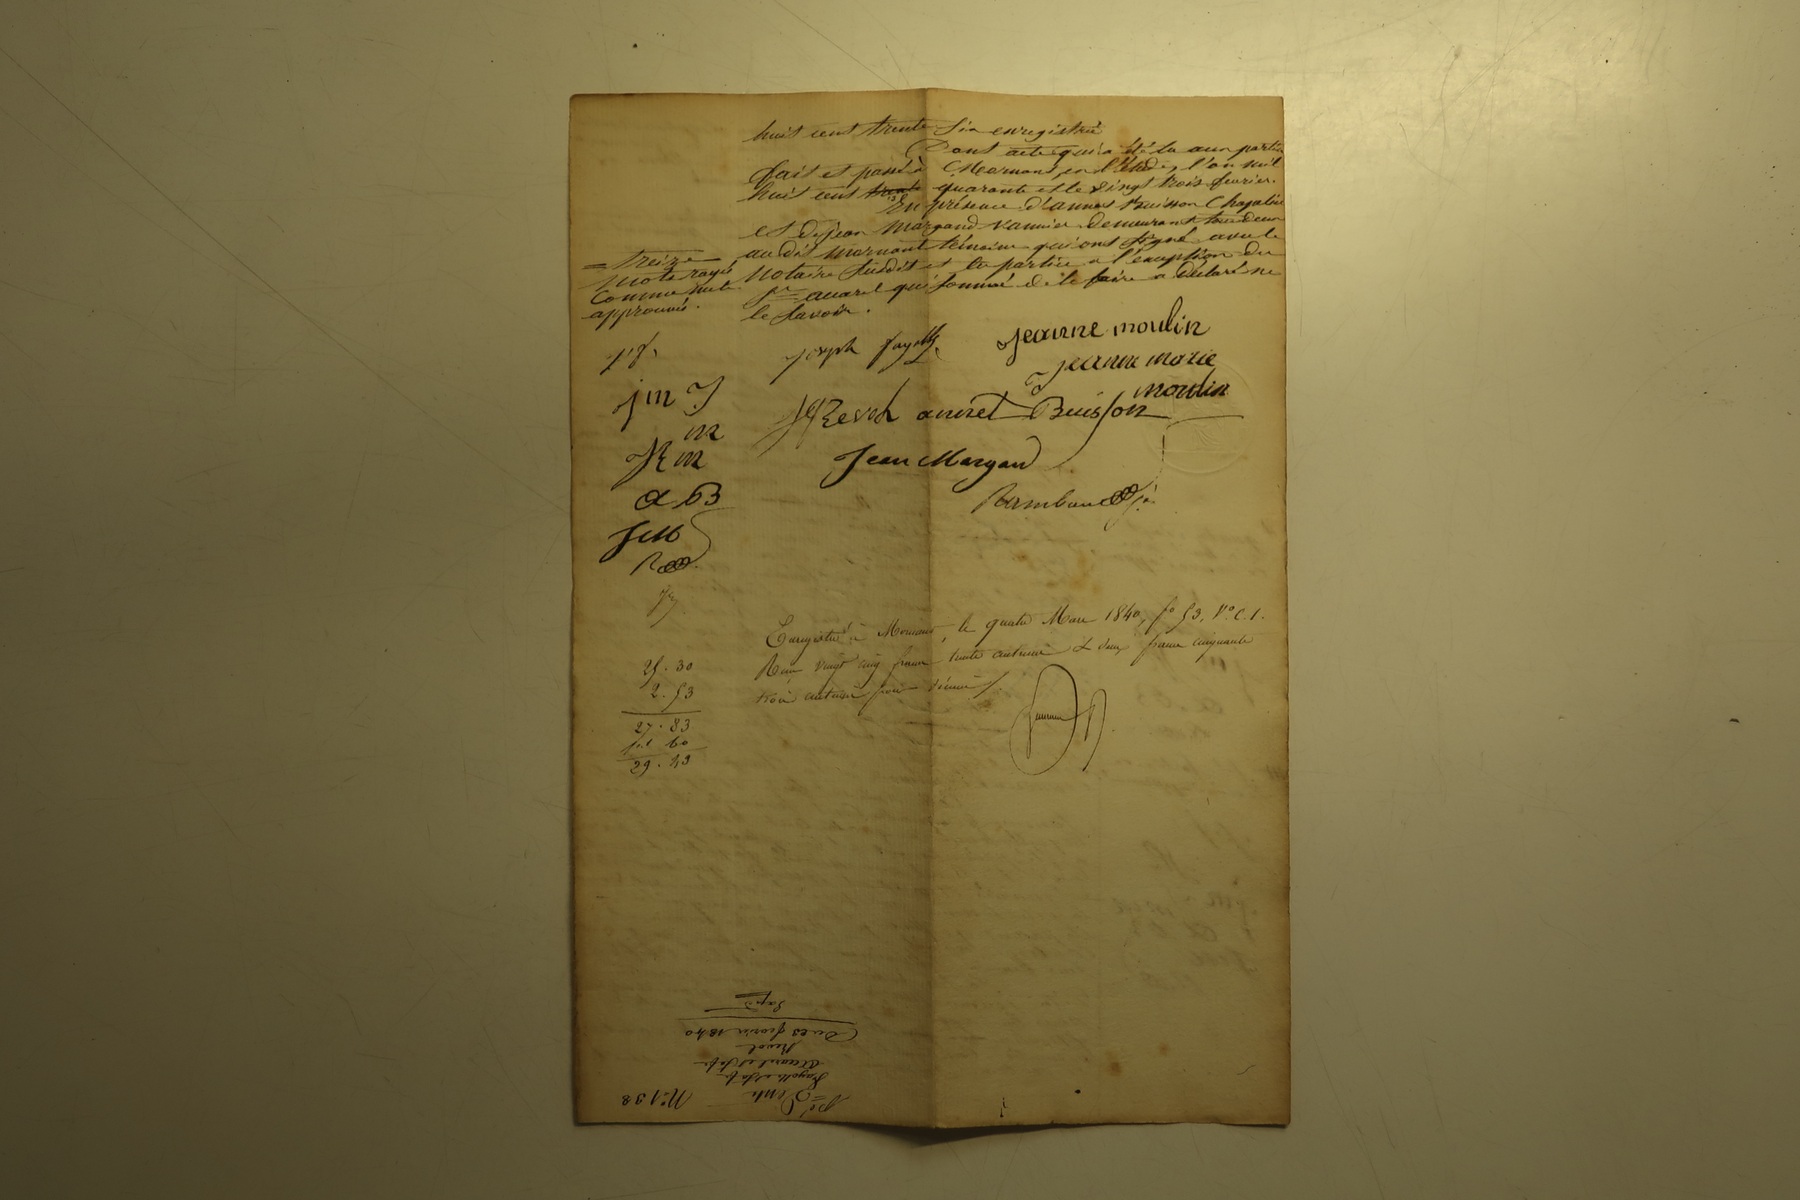 huit cent trente six enregistré
Dont acte qui a été lu aux parties
fait et passé à Mornant, en l'étude, l'an mil
huit cent trente quarante et le vingt trois février.
En présence d'annet Buisson Chapelier
et de jean Margand vannier demeurant tous deux
au dit Mornant témoins qui ont signé avec le
Notaire susdit et les parties à l'exception du
Sr avarel qui sommé de le faire a déclaré ne
le savoir.
treize
mots rayés
comme nuls
approuvés.
j. f.
Joseph fayolle
Jeanne moulin
jeanne marie
moulin
j m
m
J R m
Revol
annet Buisson
a B
Jean Margand
J M
Rambaud
R
Enregistré à Mornant, le quatre Mars 1840, fo 53, Vo C. 1.
Reçu vingt cinq francs trente centimes & deux francs cinquante
trois centimes pour décime
25. 30
2. 53
27. 83
1. 60
29. 43
No 138
Vente
Fayolle et
avarel et
Revol
Du 23 février 1840